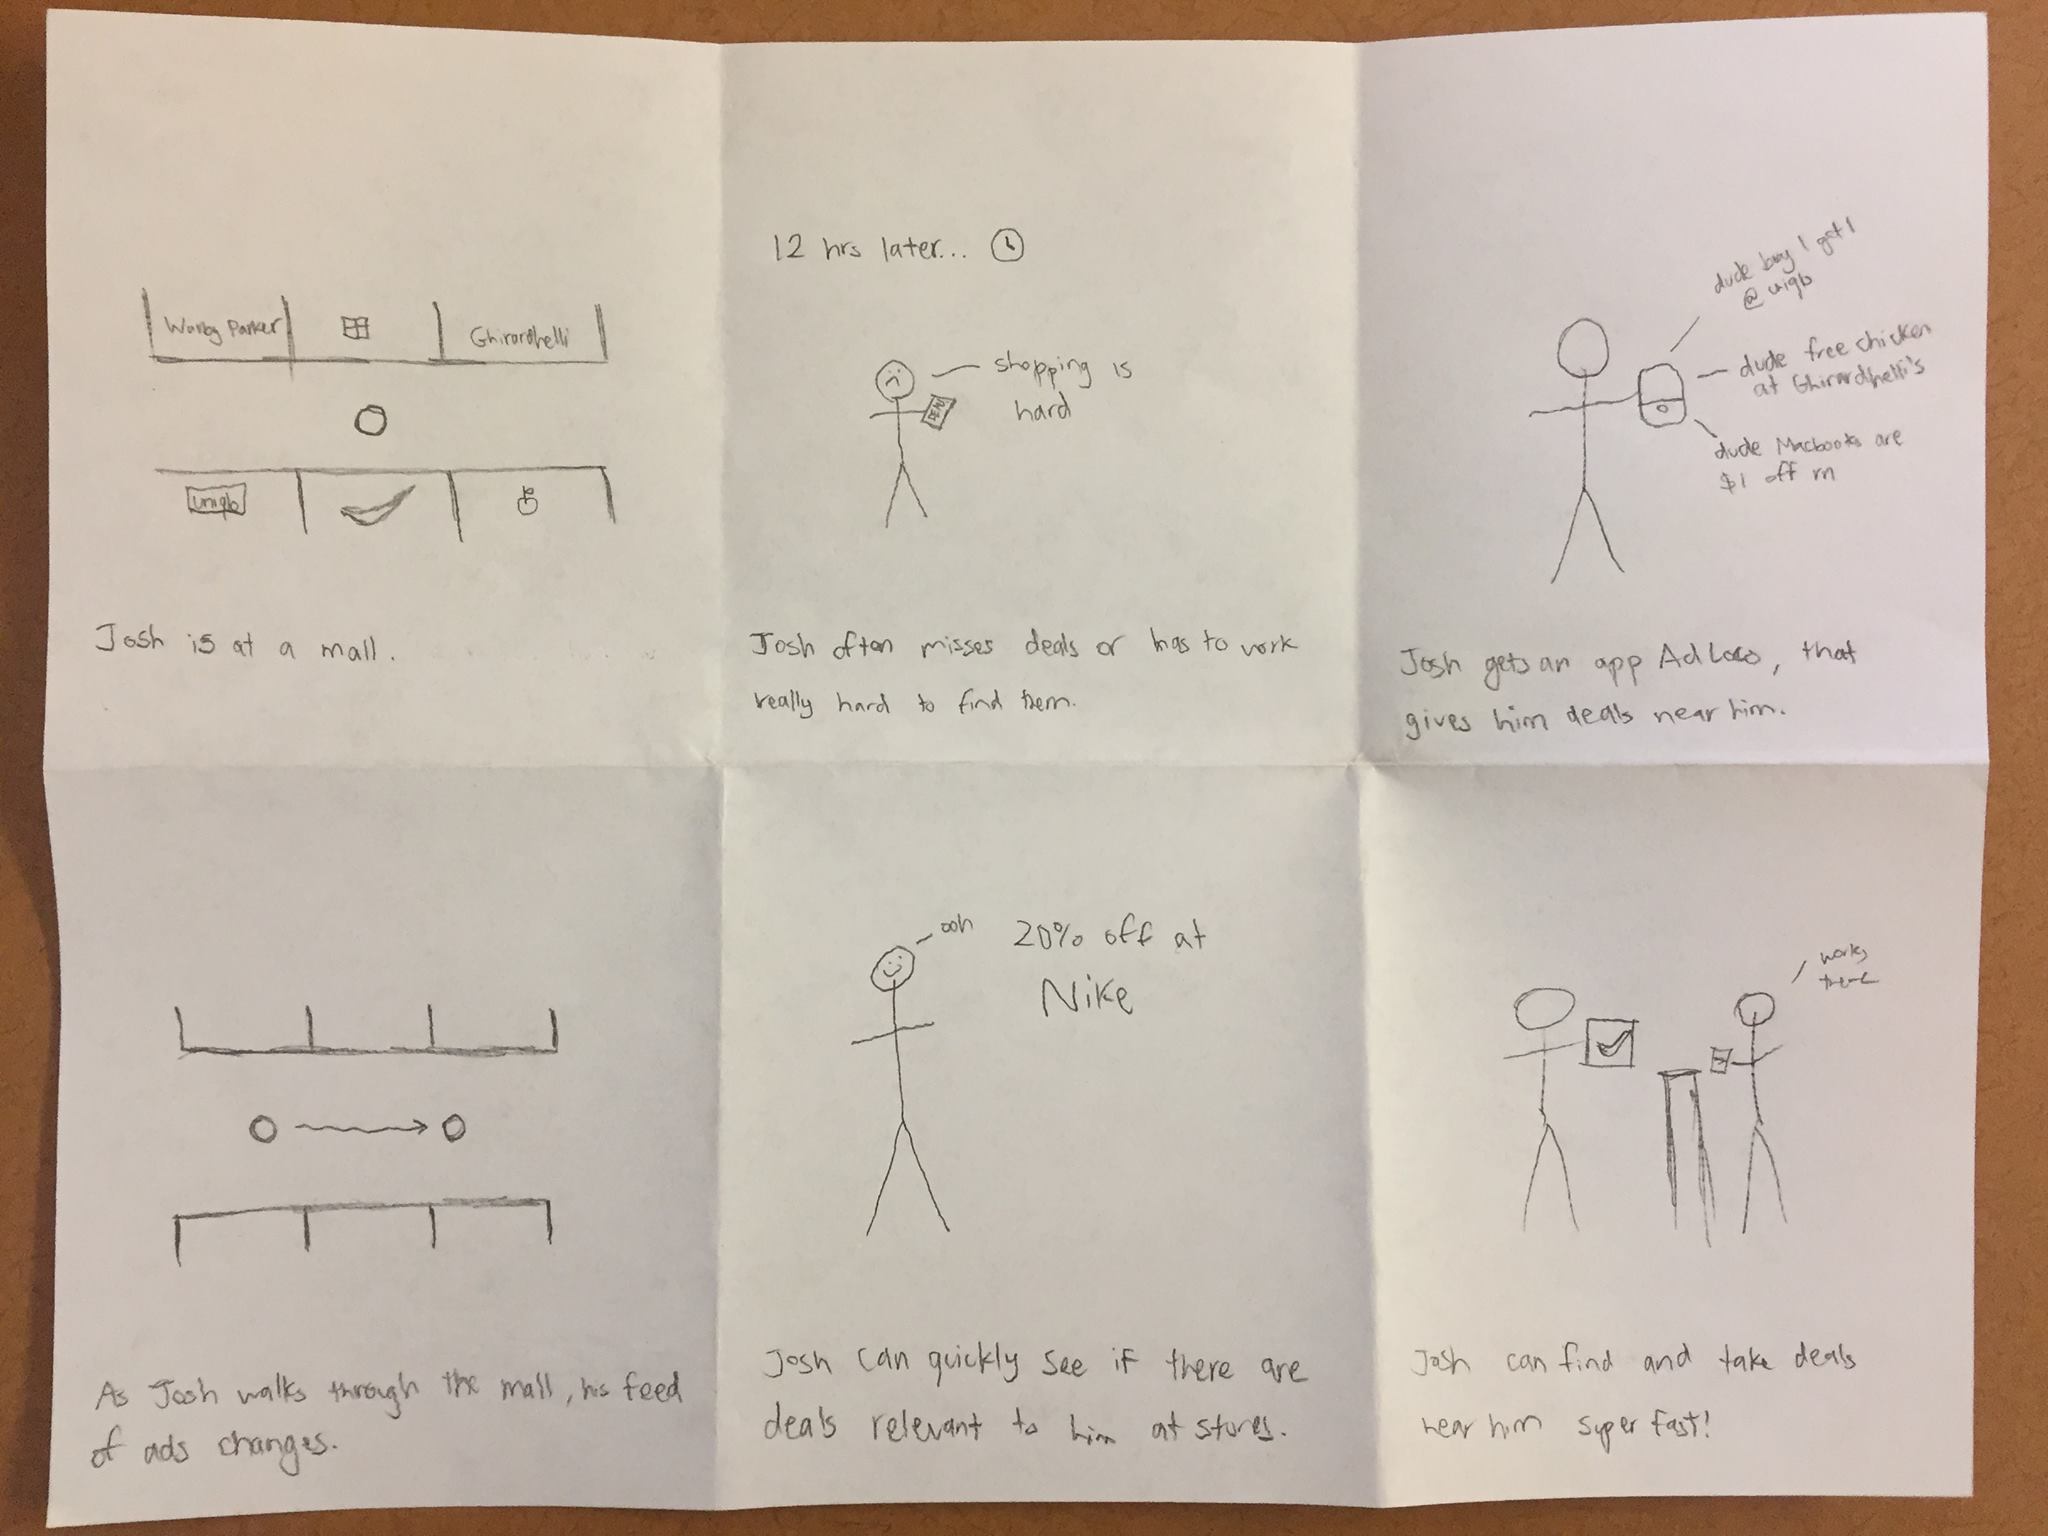 Warby Parker
Ghirardhelli
uniqlo
Josh is at a mall.
12 hrs later...
shopping is
hard
Josh often misses deals or has to work
really hard to find them.
dude buy 1 get 1
@ uiqlo
dude free chicken
at Ghirardhelli's
dude Macbooks are
$1 off rn
Josh gets an app AdLoco, that
gives him deals near him.
As Josh walks through the mall, his feed
of ads changes.
ooh
20% off at
Nike
Josh can quickly see if there are
deals relevant to him at stores.
works
there
Josh can find and take deals
near him super fast!